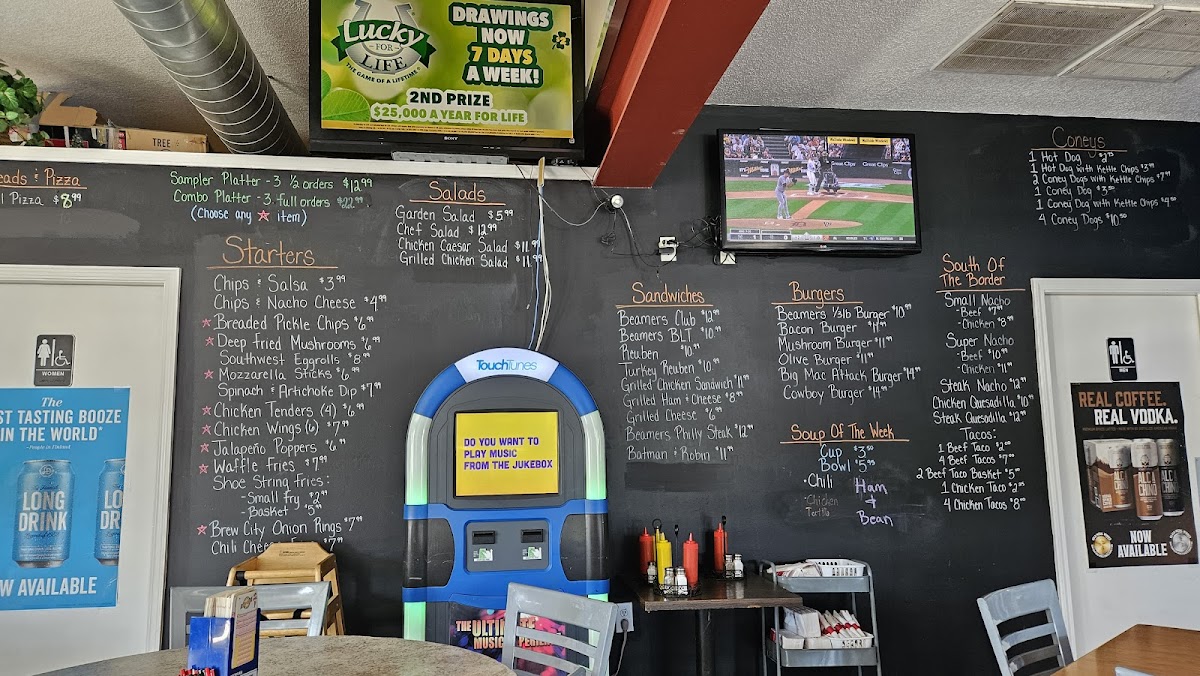 Lucky
FOR
LIFE
THE GAME OF A LIFETIME
DRAWINGS
NOW
7 DAYS
A WEEK!
2ND PRIZE
$25,000 A YEAR FOR LIFE
SONY
TREE
eads & Pizza
l Pizza $8.99
Sampler Platter - 3 ½ orders $12.99
Combo Platter - 3 full orders $22.99
(Choose any ★ item)
Starters
Chips & Salsa $3.99
Chips & Nacho Cheese $4.99
★ Breaded Pickle Chips $6.99
★ Deep Fried Mushrooms $6.99
Southwest Eggrolls $8.99
★ Mozzarella Sticks $6.99
Spinach & Artichoke Dip $7.99
★ Chicken Tenders (4) $6.99
★ Chicken Wings (6) $7.99
★ Jalapeño Poppers $6.99
★ Waffle Fries $7.99
Shoe String Fries:
- Small Fry $2.99
- Basket $5.99
★ Brew City Onion Rings $7.99
Chili Chee
Salads
Garden Salad $5.99
Chef Salad $12.99
Chicken Caesar Salad $11.99
Grilled Chicken Salad $11.99
Sandwiches
Beamers Club $12.99
Beamers BLT $10.99
Reuben $10.99
Turkey Reuben $10.99
Grilled Chicken Sandwich $11.99
Grilled Ham & Cheese $8.99
Grilled Cheese $6.99
Beamers Philly Steak $12.99
Batman & Robin $11.99
Burgers
Beamers 1/3lb Burger $10.99
Bacon Burger $11.99
Mushroom Burger $11.99
Olive Burger $11.99
Big Mac Attack Burger $14.99
Cowboy Burger $14.99
Soup Of The Week
Cup $3.50
Bowl $5.95
• Chili
Ham
&
Bean
- Chicken
Tortilla
South Of
The Border
Small Nacho
- Beef $7.99
- Chicken $8.99
Super Nacho
- Beef $10.99
- Chicken $11.99
Steak Nacho $12.99
Chicken Quesadilla $10.99
Steak Quesadilla $12.99
Tacos:
1 Beef Taco $2.00
4 Beef Tacos $7.00
2 Beef Taco Basket $5.00
1 Chicken Taco $2.25
4 Chicken Tacos $8.00
Coneys
1 Hot Dog
1 Hot Dog with Kettle Chips $3.99
2 Coney Dogs with Kettle Chips $7.99
1 Coney Dog $3.50
1 Coney Dog with Kettle Chips $4.50
4 Coney Dogs $10.50
Great Clips
Great Clips
TouchTunes
DO YOU WANT TO
PLAY MUSIC
FROM THE JUKEBOX
THE ULTI
MUSIC
WOMEN
The
ST TASTING BOOZE
IN THE WORLD*
LONG
DRINK
LO
DR
OW AVAILABLE
MEN
REAL COFFEE.
REAL VODKA.
NOW
AVAILABLE